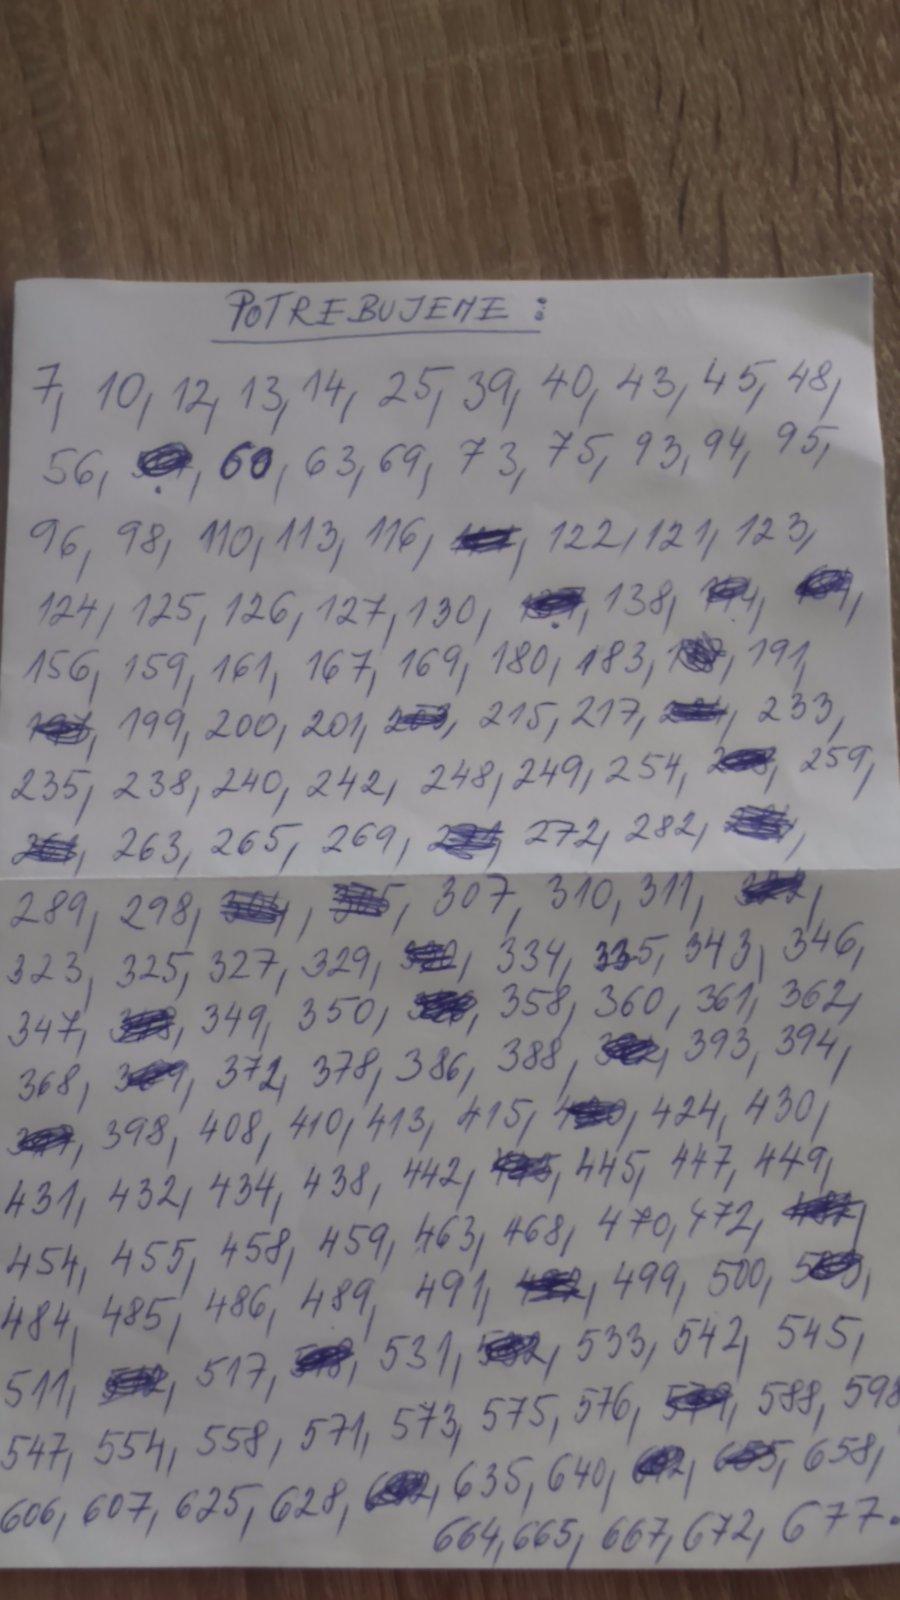 POTREBUJEME :
7, 10, 12, 13, 14, 25, 39, 40, 43, 45, 48,
56, 60, 63, 69, 73, 75, 93, 94, 95,
96, 98, 110, 113, 116, 122, 121, 123,
124, 125, 126, 127, 130, 138,
156, 159, 161, 167, 169, 180, 183, 191,
199, 200, 201, 215, 217, 233,
235, 238, 240, 242, 248, 249, 254, 259,
263, 265, 269, 272, 282,
289, 298, 307, 310, 311,
323, 325, 327, 329, 334, 335, 343, 346,
347, 349, 350, 358, 360, 361, 362,
368, 372, 378, 386, 388, 393, 394,
398, 408, 410, 413, 415, 424, 430,
431, 432, 434, 438, 442, 445, 447, 449,
454, 455, 458, 459, 463, 468, 470, 472,
484, 485, 486, 489, 491, 499, 500,
511, 517, 531, 533, 542, 545,
547, 554, 558, 571, 573, 575, 576, 588, 598
606, 607, 625, 628, 635, 640, 658,
664, 665, 667, 672, 677.